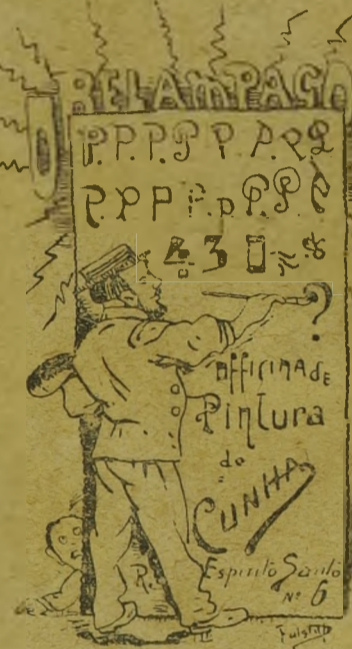 O RELAMPAGO
P.P.P.P P P.P.P
P.P P P.P.P.P.P
4 3 0
?
OFFICINA DE
Pintura
do
CUNHA
R. Espirito Santo
Nº 6